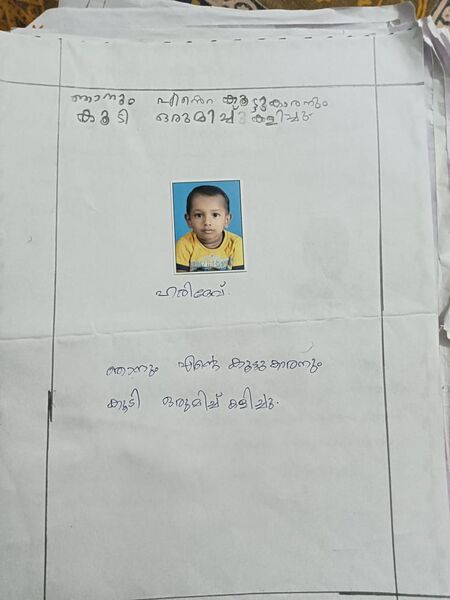 ഞാനും എന്റെ കൂട്ടുകാരനും
കൂടി ഒരുമിച്ചു കളിച്ചു
ഹരിദേവ്.
ഞാനും എന്റെ കൂട്ടുകാരനും
കൂടി ഒരുമിച്ച് കളിച്ചു.